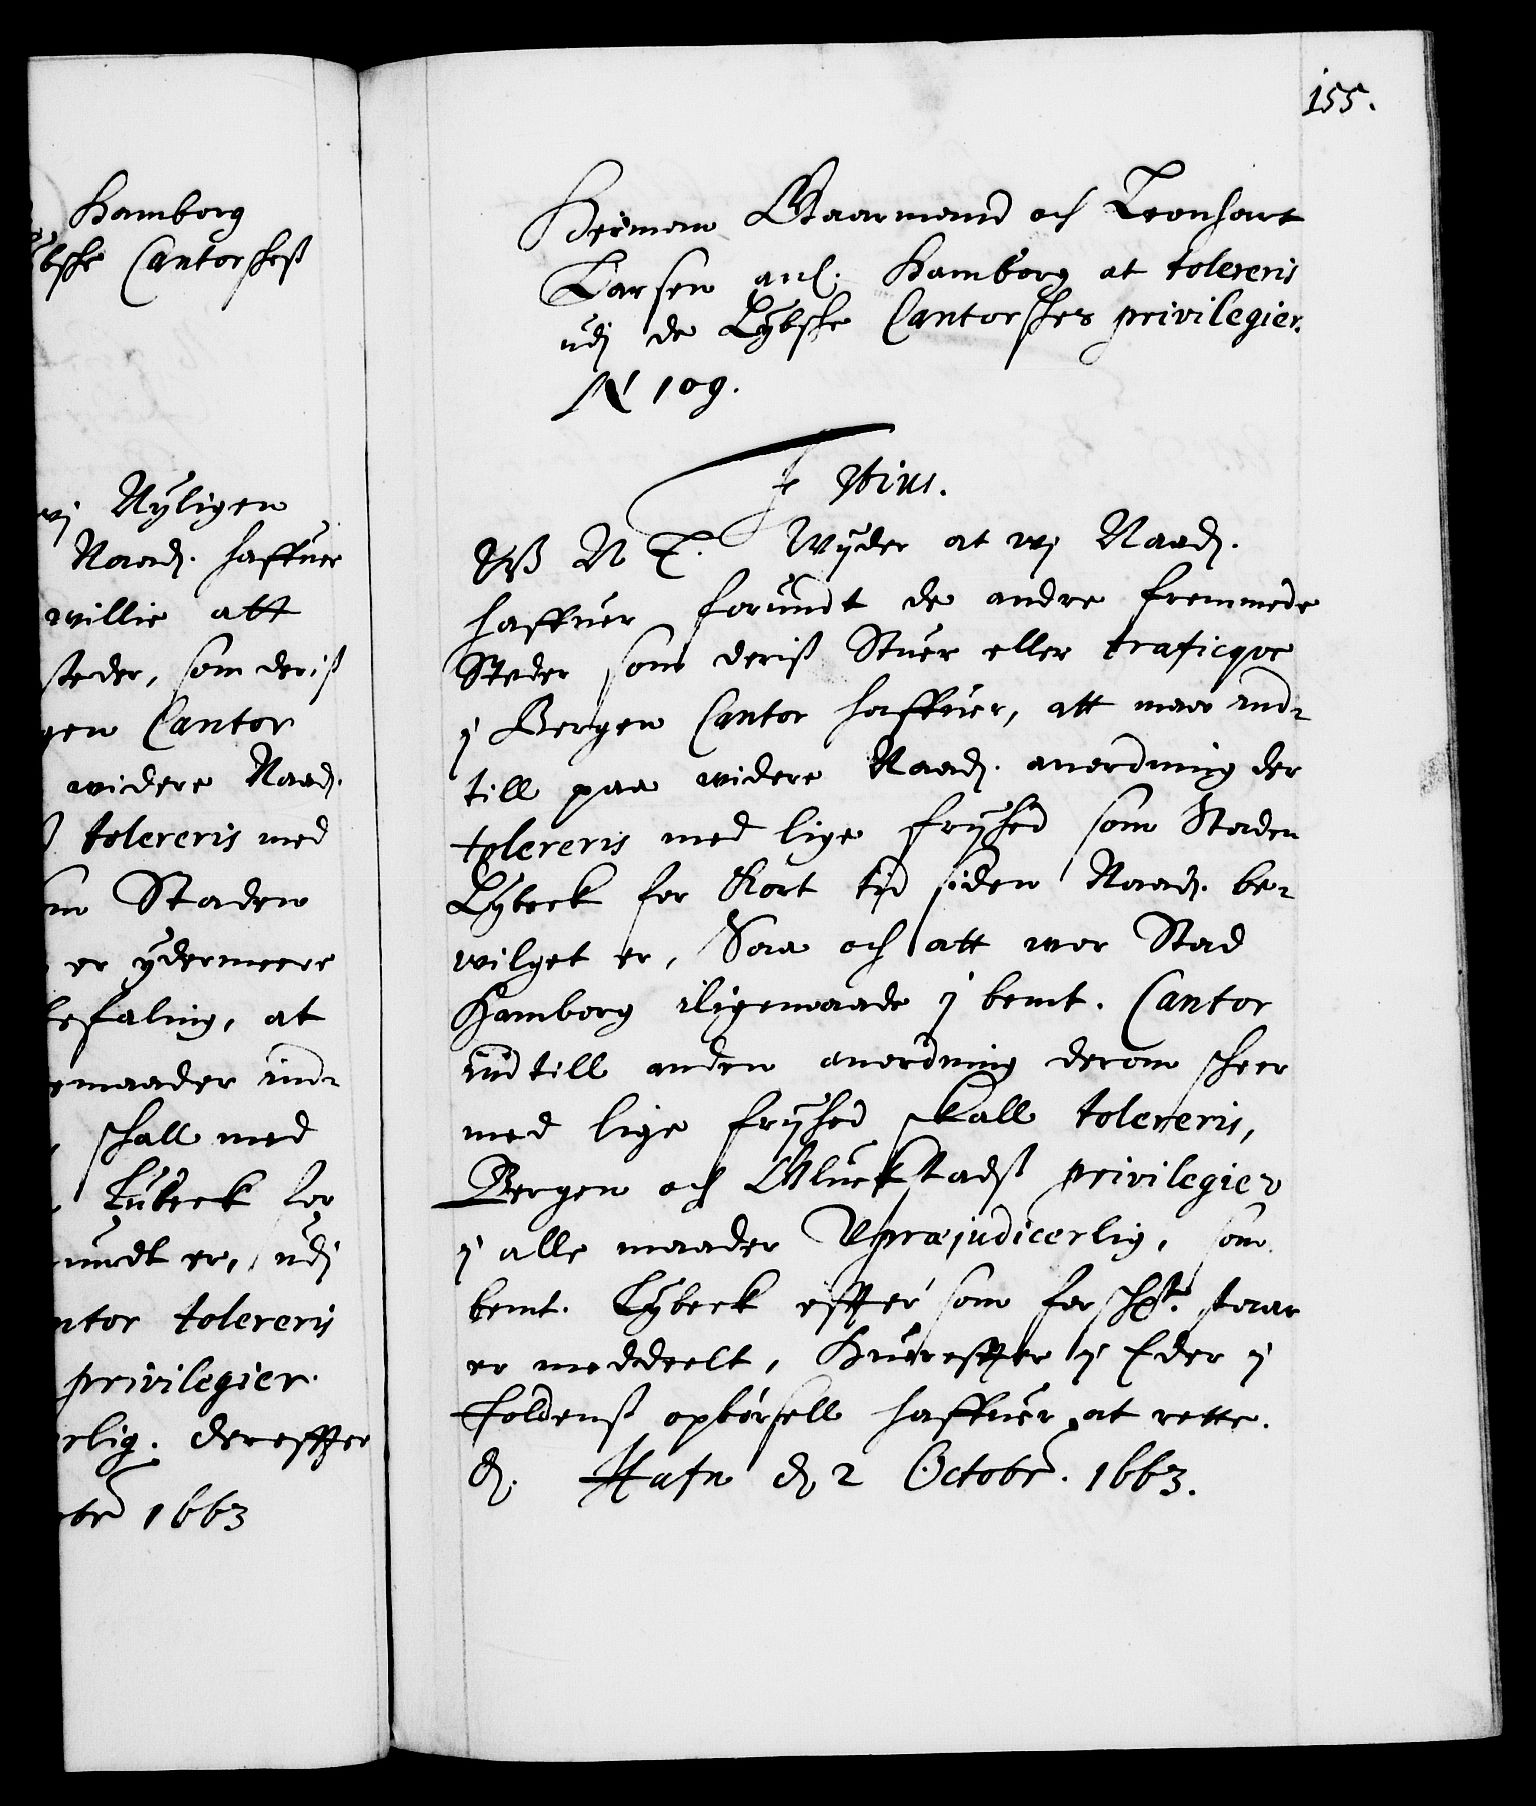 Hamborg
bske Cantorsches
wj Nyligen
Naad. haffuer
willie att
steder, som deris
gen Cantor
widere Naad.
tolereris med
m Staden
er ydermeere
befaling, at
maader ind-
schall med
Lubeck for
undt er, udj
ntor tolereris
privilegier
rlig. dereffter
br 1663
155.
Herman Gaarmand och Leonhart
Larsen anl. Hamborg at tolereris
udj de Lybske Cantorsches privilegier.
N 109.
F 3tius.
V. G. T. Wyder at wj Naad.
haffuer forundt de andre fremmede
Steder som deris Stuer eller traficqve
j Bergen Cantor haffuer, att maa ind-
till paa widere Naad. anordning der
tolereris med lige fryhed som Staden
Lybeck for Kort tid siden Naad. be-
wilget er, Saa och att wor Stad
Hamborg iligemaade j bemt. Cantor
indtill anden anordning derom scheer
med lige fryhed skall tolereris,
Bergen och Gluckstads privilegier
j alle maader Upræjudicerlig, som
bemt. Lybeck effter som forscht. staar
er meddeelt, Huereffter j Eder j
Toldens opbørsell haffuer at rette.
d. Hafn d. 2 Octobr. 1663.